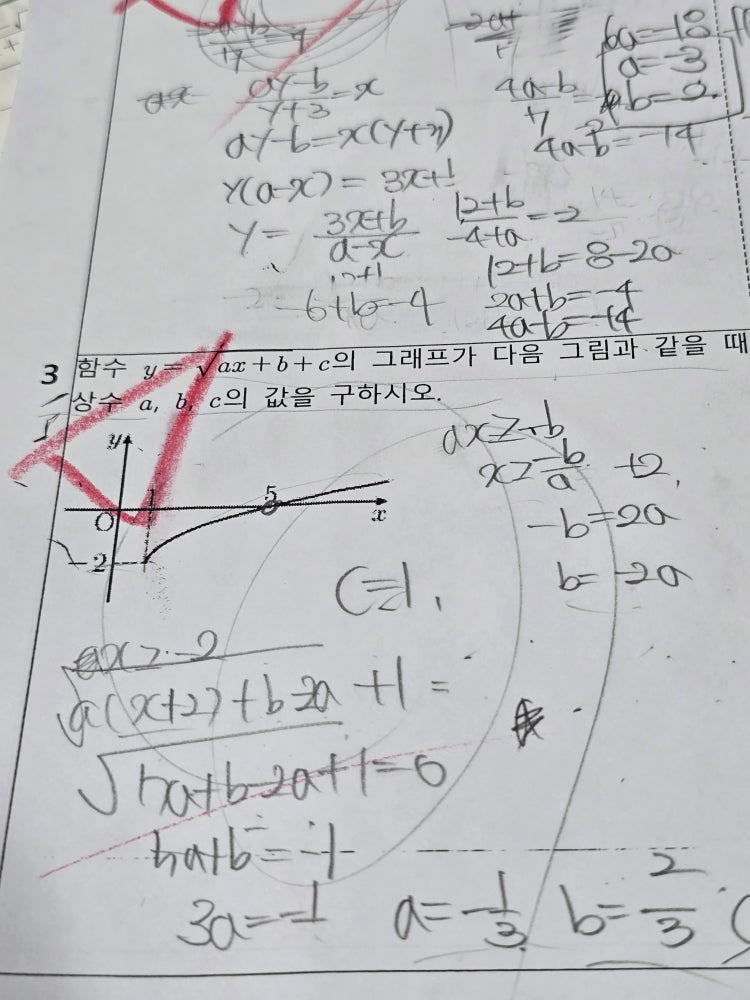 6a=-18
a=-3
b=2
ay-b/y+3=x
4a-b/+7
ay-b=x(y+3)
4a-b=-14
y(a-x)=3x+b
y=3x+b/a-x
12+b/-4+a=-2
12+b=8-2a
-6+b=-4
2a+b=-4
4a-b=-14
3 함수 y=√ax+b+c의 그래프가 다음 그림과 같을 때
상수 a, b, c의 값을 구하시오.
ax≥-b
x≥-b/a +2,
-b=2a
b=-2a
y
1
5
O
x
-2
C=1.
ax≥-2
√a(x+2)+b-2a +1=
√5a+b-2a+1=0
5a+b=-1
3a=-1 a=-1/3 b=2/3